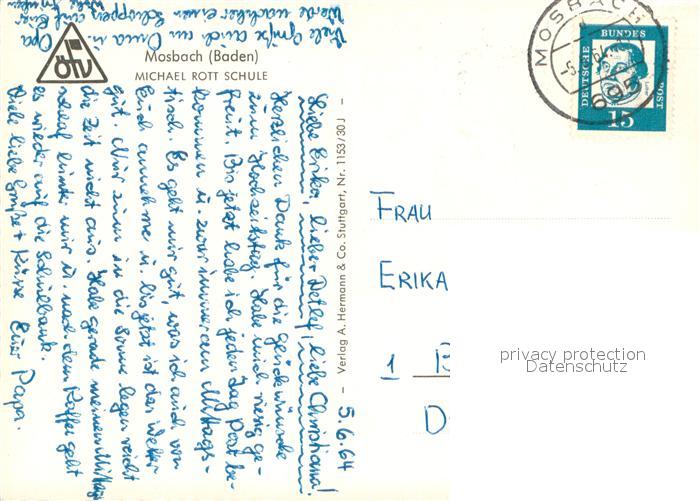 Mosbach (Baden)
MICHAEL ROTT SCHULE
ÖTV
5.6.64
Liebe Erika, lieber Detlef, liebe Christiana!
Herzlichen Dank für die Glückwünsche
zum Hochzeitstag. Habe mich riesig ge-
freut. Bis jetzt habe ich jeden Tag Post be-
kommen u. zwar immer am Mittags-
tisch. Es geht mir gut, was ich auch von
Euch annehme u. bis jetzt ist das Wetter
gut. Nur zum in die Sonne legen reicht
die Zeit nicht aus. Habe gerade meinen Mittag
schlaf hinter mir u. nach dem Kaffee geht
es wieder auf die Schulbank.
Viele liebe Grüße + Küsse Euer Papa.
Viele Grüße auch an Oma u. Opa
Werde nachher einen Schoppen auf Euer
Wohl trinken
– Verlag A. Hermann & Co. Stuttgart, Nr. 1153/30 J –
MOSBACH
695
DEUTSCHE
BUNDES
POST
15
FRAU
ERIKA
1
D
privacy protection
Datenschutz